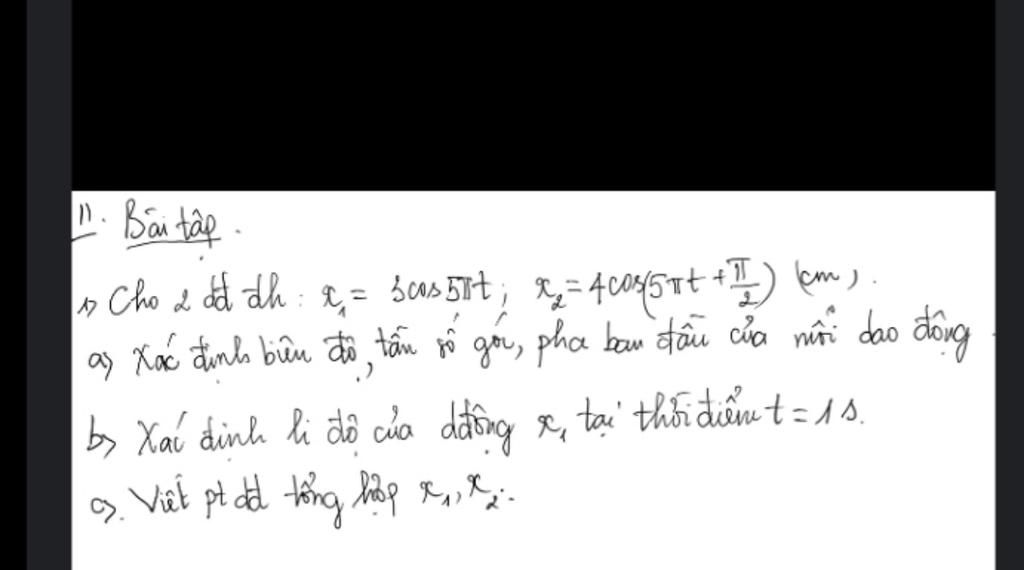 II. Bài tập.
1) Cho 2 dđ dh: x₁ = 3cos5πt; x₂ = 4cos(5πt + π/2) (cm).
a) Xác định biên độ, tần số góc, pha ban đầu của mỗi dao động
b) Xác định li độ của dđộng x₁ tại thời điểm t = 1s.
c). Viết pt dđ tổng hợp x₁, x₂.